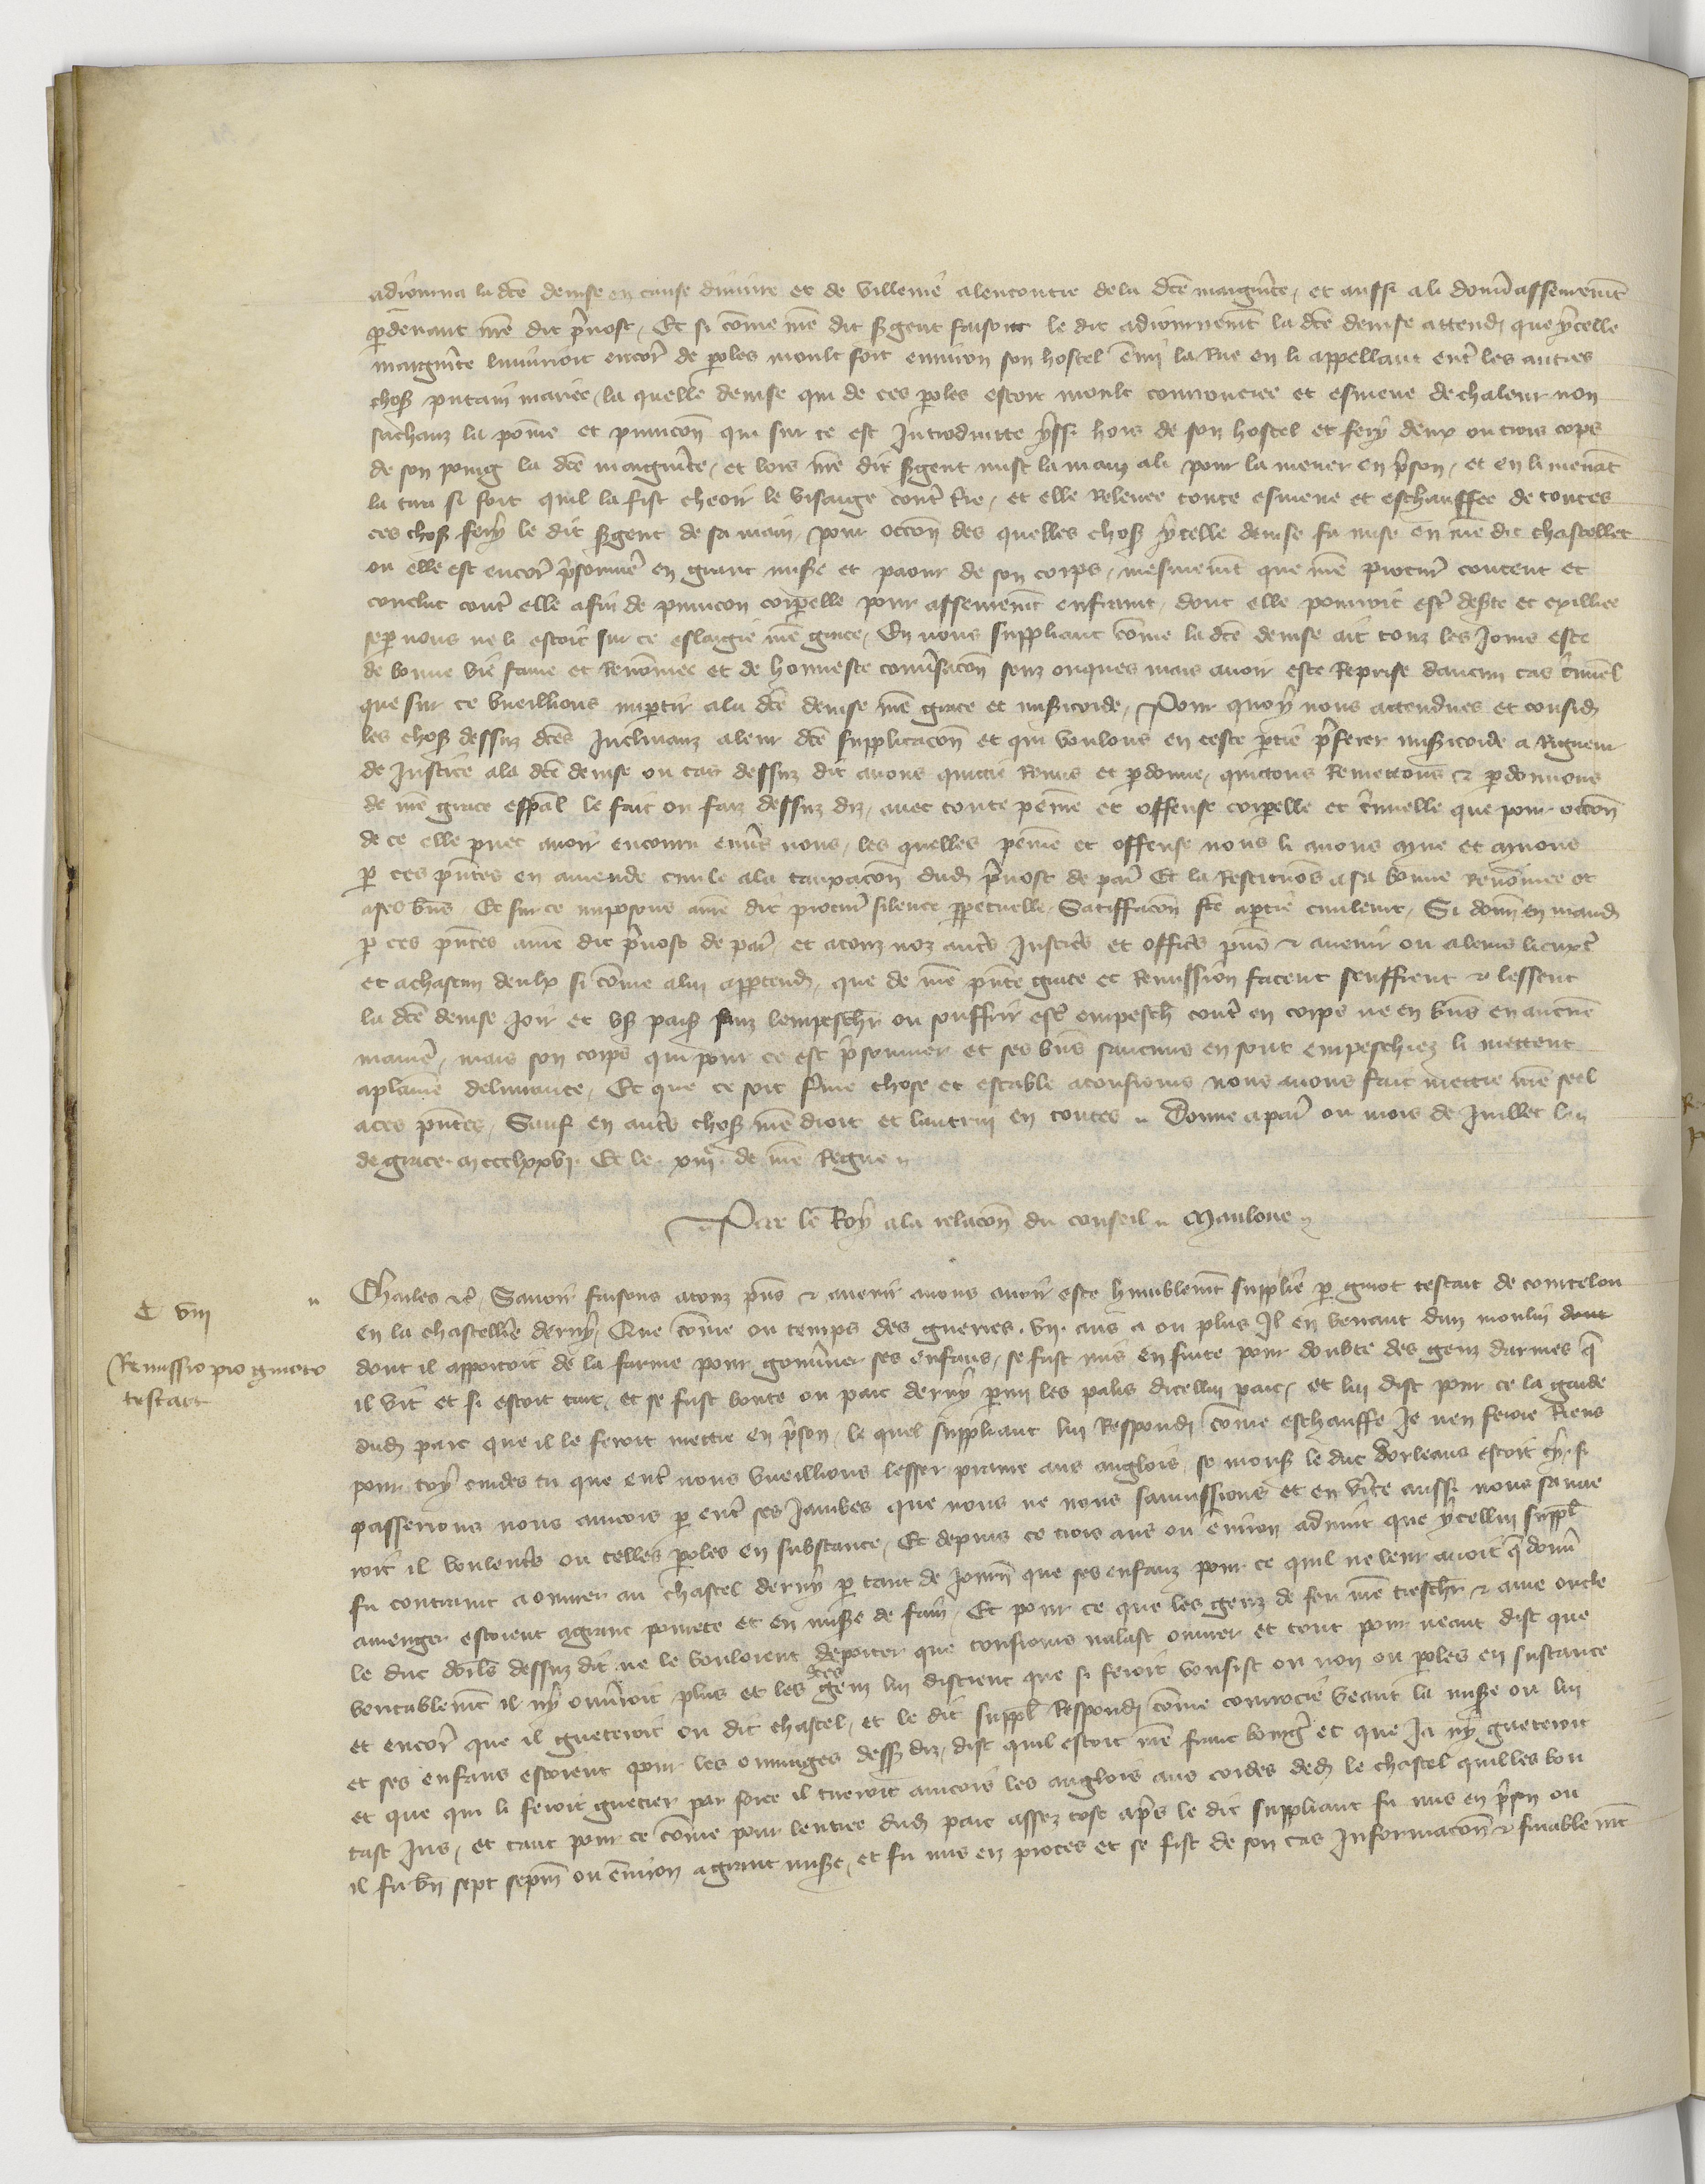 adiourna la dcē denise en cause diniure et de villenie alencontre de la dcē marguīte, et aussi a li donn̄ assseuremēt
p̄deuant nr̄e dit p̄uost, Et si cōme nr̄e dit sgent faisoit le dit adiournemēt la dcē denise attend que ycelle
marguīte liniurioit encor̄ de p̄oles moult fort enuiron son hostel ēmy la Rue en li appellant ent̄ les autres
chos̄ putain mariee, la quelle denise qui de ces p̄oles estoit moult courrouciee et esmeue de chaleur non
sachanz la poine et punicōn qui sur ce est Introduitte yssi hors de son hostel et fery deux ou trois cops
de son poing la dcē marguīte, et lors nr̄e dit sgent mist la main a li pour la mener en p̄son, et en li menāt
la tira si fort quil la fist cheoir le visaige cont̄ tr̄e, et elle Releuee toute esmeue et eschauffee de toutes
ces chos̄ fery le dit sgent de sa main, pour occōn des quelles chos̄ ycelle denise fu mise en nr̄e dit chastellet
ou elle est encor̄ p̄sonnier̄ en grant mis̄e et paour de son corps, mesmemēt que nr̄e procur̄ content et
conclut cont̄ elle afin de punicon corp̄elle pour asseuremēt enfraint, dont elle pourroit est̄ des̄te et exilliee
se p̄ nous ne li estoit sur ce eslargie nr̄e grace, En nous suppliant cōme la dcē denise ait touz les Jours este
de bonne vie fame et Renōmee et de honneste conūsacōn senz onques mais auoir este Reprise daucun cas c̄mīnel
que sur ce vueillions imp̄tir a la dcē denise nr̄e grace et mis̄icorde, Pour quoy nous attendues et consid
les chos̄ dessuz dcēs Inclinanz a leur dcē supplicacōn et qui voulons en ceste p̄tie p̄ferer mis̄icorde a Rigueur
de Justice a la dcē denise ou cas dessuz dit auons quictie Remis et p̄donne, quictons Remettons & p̄donnons
de nr̄e grace esp̄al le fait ou faiz dessuz diz, auec toute peine et offense corp̄elle et c̄minelle que pour occōn
de ce elle puet auoir encouru enūs nous, les quelles peine et offense nous li auons mue et muons
p̄ ces p̄ntes en amende ciuile a la tauxacōn dud p̄uost de par̄ Et la Restituōs a sa bonne Renōmee et
a ses bn̄s, Et sur ce imposons a nr̄e dit procur̄ silence p̄petuelle, Satiffacōn fcē a p̄tie ciuilemt, Si donn̄ en mand
p̄ ces p̄ntes a nr̄e dit p̄uost de par̄ et a touz noz aut̄s Justic̄s et offic̄s p̄ns & auenir ou a leurs lieuxt̄
et a chascun deulx si cōme a lui app̄tend, que de nr̄e p̄nte grace et Remission facent seuffrent & lessent
la dcē denise Joir et vs̄ pais̄ sanz lempeschr̄ ou souffrir est̄ empesch cont̄ en corps ne en bn̄s en aucune
manier̄, mais son corps qui pour ce est p̄sonnier et ses bn̄s saucuns en sont empeschiez li mettent
a plaine deliurance, Et que ce soit f̄me chose et estable a tousiours nous auons fait mettre nr̄e seel
a ces p̄ntes, Sauf en aut̄s chos̄ nr̄e droit et lautrui en toutes. Donne a par̄ ou mois de Juillet lan
de grace. mccclxxvi. Et le. xiii. de nr̄e Regne.
Par le Roy a la relacōn du conseil. Mauloue.
C viii
Remissio pro guioto
testart
Charles &c̄, Sauoir faisons a touz p̄ns & auenir a nous auoir este humblemēt supplie p̄ guiot testart de courcelon
en la chastellīe deruy, Que cōme ou temps des guerres. vii. ans a ou plus Il en venant dun moulin dont
dont il apportoit de la farine pour gouūner ses enfans, se fust mis en fuite pour doubte des genz darmes q̄
il vit et si estoit tart, et se fust boute ou parc deruy p̄mi les palis dicellui parc, et lui dist pour ce la garde
dud parc que il le feroit mettre en p̄son, le quel suppliant lui Respondi cōme eschauffe Je nen feroie Riens
pour toy cuides tu que ent̄ nous vueillions lesser prenre aus anglois, se mons̄ le duc dorleans estoit cy. si
passerions nous aincois p̄ ent̄ ses Jambes que nous ne nous sauuissions et en v̄ite aussi nous sauue
roit il voulent̄s ou telles p̄oles en substance, Et depuis ce trois ans ou ēuiron aduint que ycellui suppl̄
fu contraint a ouurer au chastel deruy p̄ tant de Journ̄ que ses enfanz pour ce quil ne leur auoit q̄ donn̄
a menger estoient a grant pourete et en mis̄e de fain, Et pour ce que les genz de feu nr̄e treschr̄ & ame oncle
le duc dorl̄s dessuz dit ne le vouloient deporter que tousiours nalast ouurer et tout pour neant dist que
veritablemēt il ny ouūroit plus et les dcēs genz lui distrent que si feroit vousist ou non ou p̄oles en sustance
et encor̄ que il gueteroit ou dit chastel, et le dit suppl̄ Respondi cōme courrocie veant la mis̄e ou lui
et ses enfans estoient pour les ouurages dess̄ diz, dist quil estoit nr̄e franc bourḡ et que Ja ny gueteroit
et que qui li feroit guetier par force il trairoit aincois les anglois aus cordes ded le chastel quil les bou
tast Jus, et tant pour ce cōme pour lentree dud parc assez tost ap̄s le dit suppliant fu mis en p̄son ou
il fu bn̄ sept sepm̄ ou ēuiron a grant mis̄e, et fu mis en proces et se fist de son cas Informacōn & finablemēt